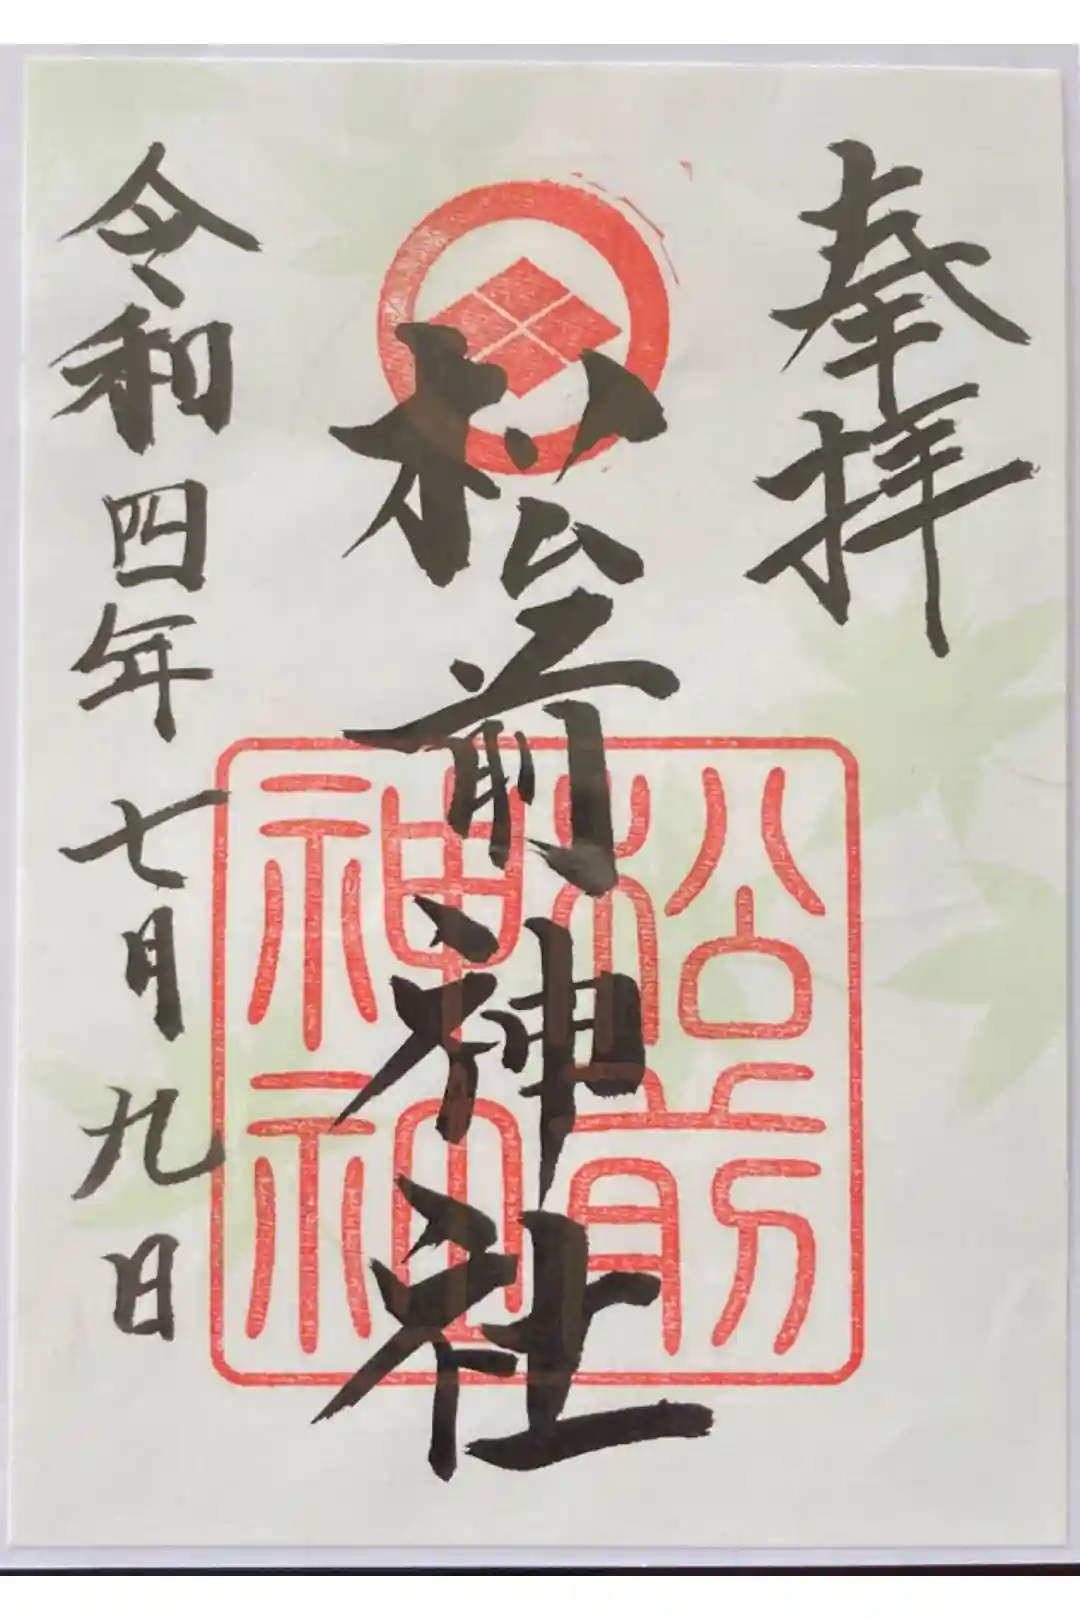 奉拝
松前神社
松前
神
令和四年七月九日